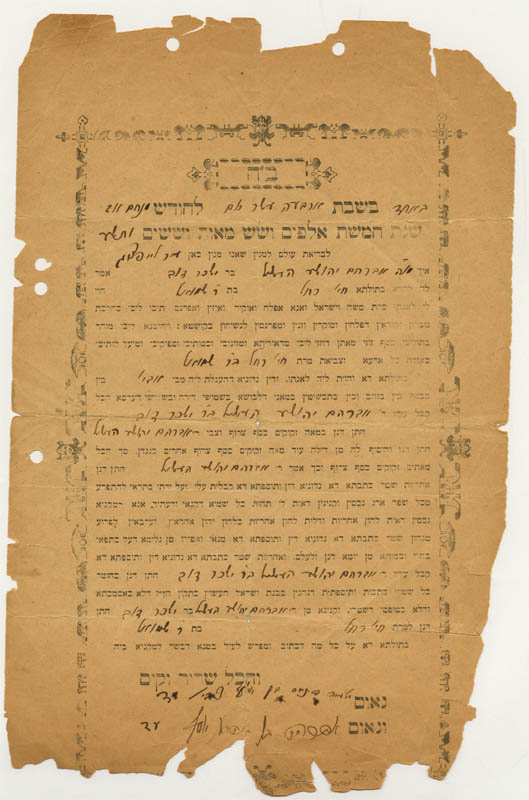 ב״ה
באחד בשבת ארבעה עשר יום לחודש מנחם אב
שנת חמשת אלפים ושש מאות וששים ותשע
לבריאת עולם למנין שאנו מנין כאן עיר לייפציג
איך אברהם יהושע העשיל בר ישכר דוב אמר
לה להדא בתולתא חי׳ רחל בת ר׳ שמואל הוי
לי לאנתו כדת משה וישראל ואנא אפלח ואוקיר ואיזון ואפרנס יתיכי ליכי כהלכת
גוברין יהודאין דפלחין ומוקרין וזנין ומפרנסין לנשיהון בקושטא: ויהיבנא ליכי מוהר
בתוליכי כסף זוזי מאתן דחזי ליכי מדאורייתא ומזוניכי וכסותיכי וסיפוקיכי ומיעל לותיכי
כאורח כל ארעא וצביאת מרת חי׳ רחל בר שמואל
בתולתא דא והוית ליה לאנתו. ודין נדוניא דהנעלת ליה מבי אבוי׳ בין
בכסף בין בזהב בין בתכשיטין במאני דלבושא בשימושי דירה ובשימושי דערסא הכל
קבל עליו ר׳ אברהם יהושע העשיל בר ישכר דוב
חתן דנן במאה זקוקים כסף צרוף וצבי ר׳ אברהם יהושע העשיל
חתן דנן והוסיף לה מן דילה עוד מאה זקוקים כסף צרוף אחרים כנגדן. סך הכל
מאתים זקוקים כסף צרוף וכך אמר ר׳ אברהם יהושע העשיל חתן דנן
אחריות שטר כתובתא דא נדוניא דין ותוספתא דא קבלית עלי ועל ירתי בתראי להתפרע
מכל שפר ארג נכסין וקנינין דאית לי תחות כל שמיא דקנאי ודעתיד אנא למקניא
נכסין דאית להון אחריות ודלית להון אחריות כלהון יהון אחראין וערבאין לפרוע
מנהון שטר כתובתא דא נדוניא דין ותוספתא דא מנאי ואפילו מן גלימא דעל כתפאי
בחיי ובמותא מן יומא דנן ולעלם. ואחריות שטר כתובתא דא נדוניא דין ותוספתא דא
קבל עליו ר׳ אברהם יהושע העשיל בר ישכר דוב חתן דנן כחומר
כל שטרי כתובות ותוספתות דנהגין בבנות ישראל העשויין כתקון חז״ל דלא כאסמכתא
ודלא כטופסי דשטרי. וקנינא מן ר׳ אברהם יהושע העשיל בר ישכר דוב חתן
דנן למרת חי׳ רחל בת ר׳ שמואל
בתולתא דא על כל מה דכתוב ומפורש לעיל במנא דכשר למקניא ביה
והכל שריר וקים
נאום בן עד
ונאום בן עד